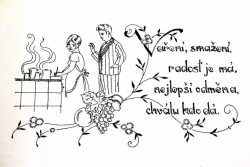 Vaření, smažení,
radost je má,
nejlepší odměna,
chválu kdo dá.